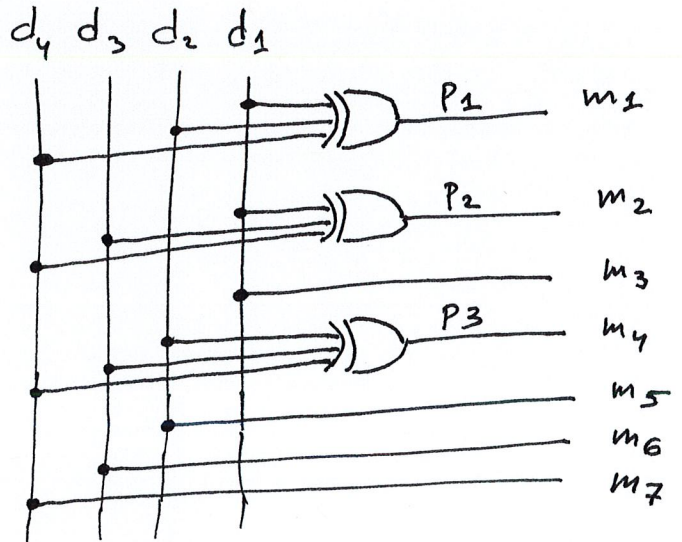 d4 d3 d2 d1
P1 m1
P2 m2
m3
P3 m4
m5
m6
m7